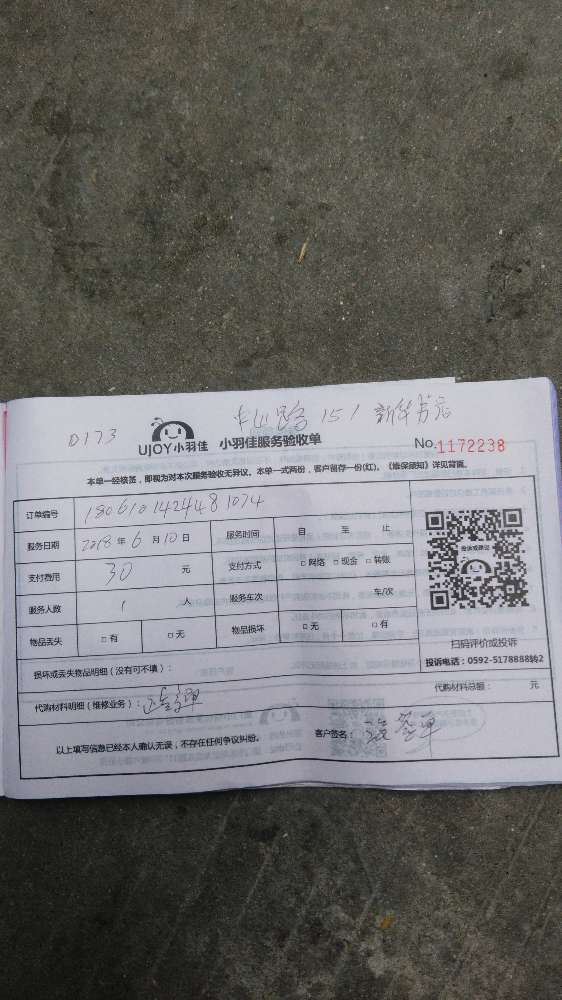 D173 中山路 151 新华书店
UJOY小羽佳 小羽佳服务验收单 No.1172238
本单一经核签，即视为对本次服务验收无异议。本单一式两份，客户留存一份(红)。《维保须知》详见背面。
订单编号 1806101424481074
服务日期 2018 年 6 月 10 日 服务时间 自 至 止
支付费用 30 元 支付方式 □网络 □现金 □转账
服务人数 1 人 服务车次 车/次
物品丢失 □有 □无 物品损坏 □无 □有
投诉或建议
扫码评价或投诉
投诉电话：0592-5178888转2
损坏或丢失物品明细（没有可不填）：
代购材料明细（维修业务）： 代购材料总额： 元
以上填写信息已经本人确认无误，不存在任何争议纠纷。 客户签名： 签单